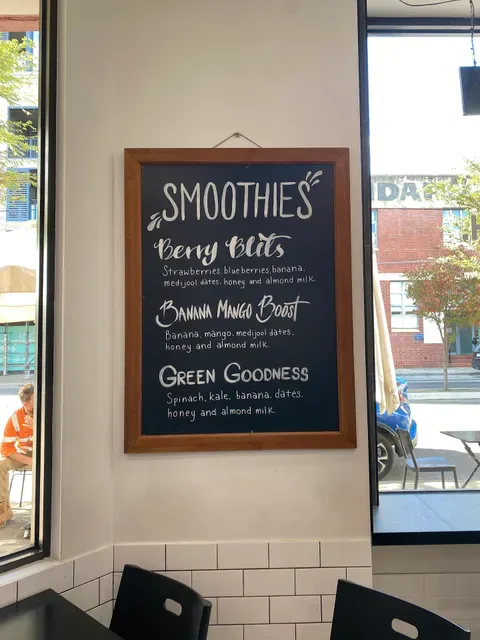 SMOOTHIES
Berry Blits
Strawberries, blueberries, banana,
medijool dates, honey and almond milk
BANANA MANGO BOOST
Banana, mango, medijool dates,
honey and almond milk
GREEN GOODNESS
Spinach, kale, banana, dates,
honey and almond milk